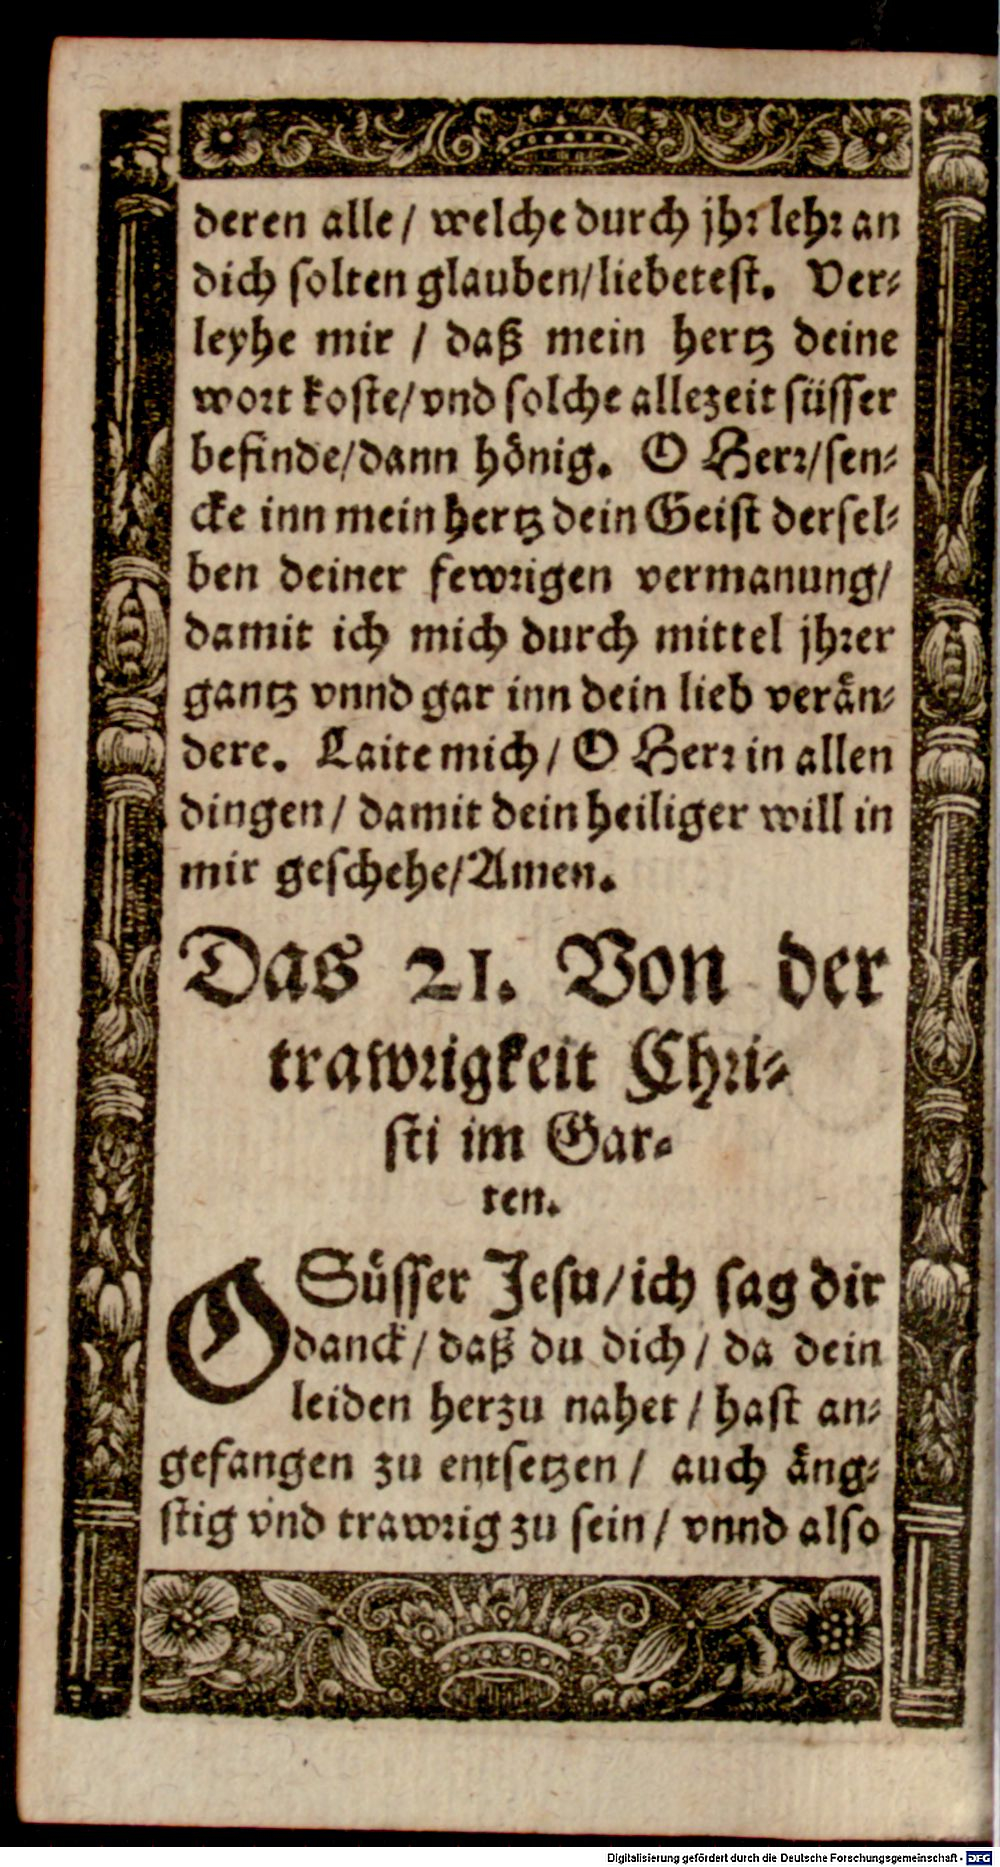 deren alle/ welche durch jhr lehr an
dich solten glauben/liebetest. Ver-
leyhe mir / daß mein hertz deine
wort koste/vnd solche allezeit süsser
befinde/dann hönig. O Herr/sen-
cke inn mein hertz dein Geist dersel-
ben deiner fewrigen vermanung/
damit ich mich durch mittel jhrer
gantz vnnd gar inn dein lieb verän-
dere. Laite mich/ O Herr in allen
dingen/ damit dein heiliger will in
mir geschehe/Amen.
Das 21. Von der
trawrigkeit Chri-
sti im Gar-
ten.
O Süsser Jesu/ich sag dir
danck/ daß du dich/ da dein
leiden herzu nahet/ hast an-
gefangen zu entsetzen/ auch äng-
stig vnd trawrig zu sein/ vnnd also
Digitalisierung gefördert durch die Deutsche Forschungsgemeinschaft - DFG